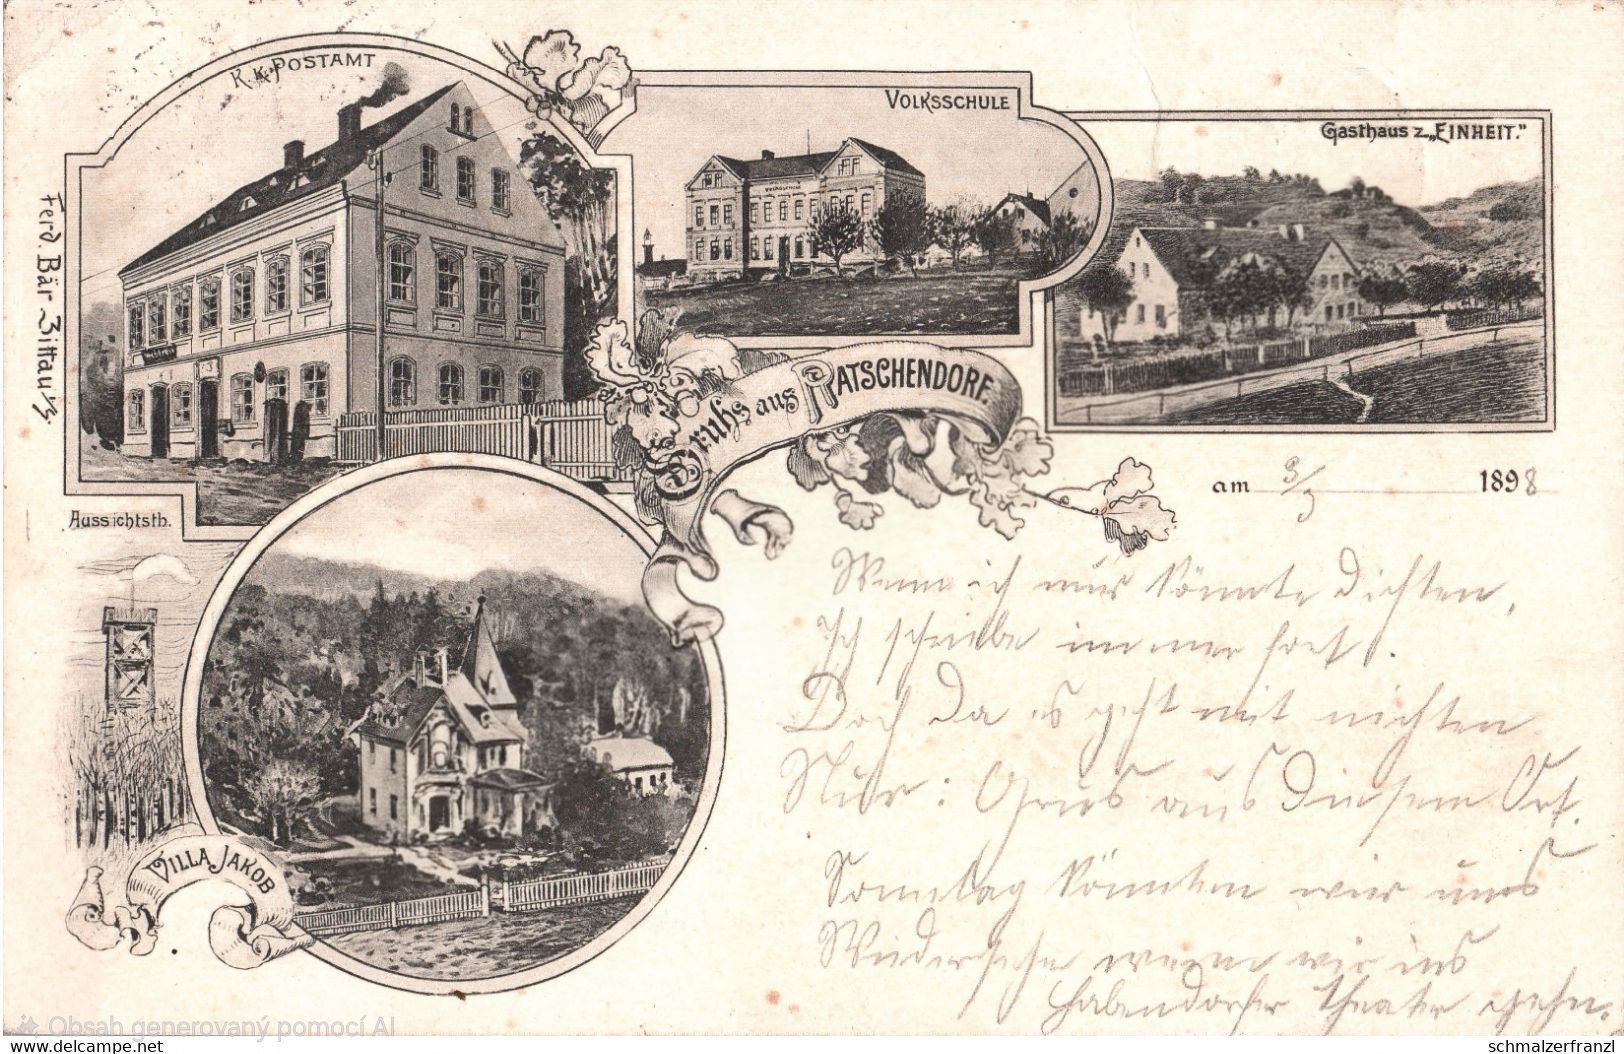 K.K. POSTAMT
VOLKSSCHULE
Gasthaus z. „EINHEIT."
VOLKSSCHULE
Ferd. Bär Zittau i/S.
Gruss aus RATSCHENDORF.
Aussichtsth.
am 3/3 1898
VILLA JAKOB
Wenn ich nur könnte dichten,
Ich schriebe immer fort.
Doch da es geht mit nichten
Nur: Gruss aus diesem Ort.
Sonntag könnten wir uns
Wiedersehn wenn wir ins
Habendorfer Theater gehn.
Obsah generovaný pomocí AI
www.delcampe.net
schmalzerfranzl